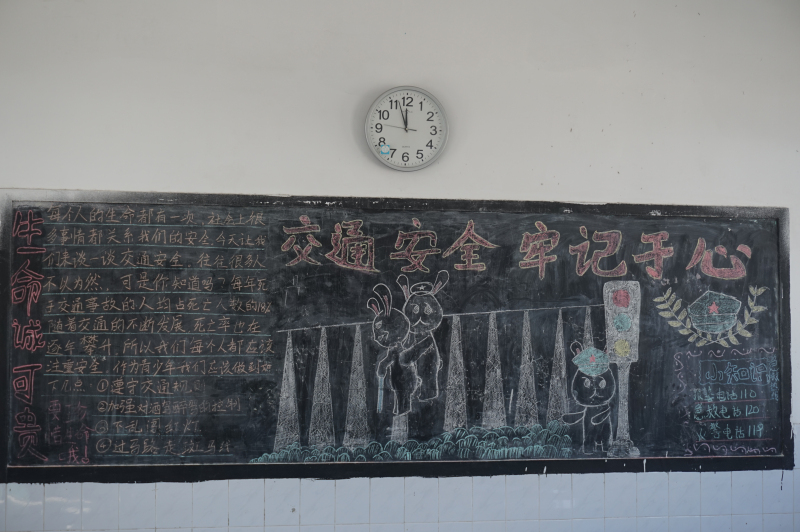 12
1
2
3
4
5
6
7
8
9
10
11
生命诚可贵
交通安全 牢记于心
每个人的生命都有一次 社会上很
多事情都关系我们的安全 今天让我
们来谈一谈交通安全 往往很多人
不以为然,可是你知道吗?每年死
于交通事故的人约占死亡人数的
随着交通的不断发展 死亡率也在
逐年攀升 所以我们每个人都应该
注重安全 作为青少年我们应该做到
下几点:①遵守交通规则
②加强对
③不乱闯红灯
④过马路走斑马线
报警电话110
急救电话120
火警电话119